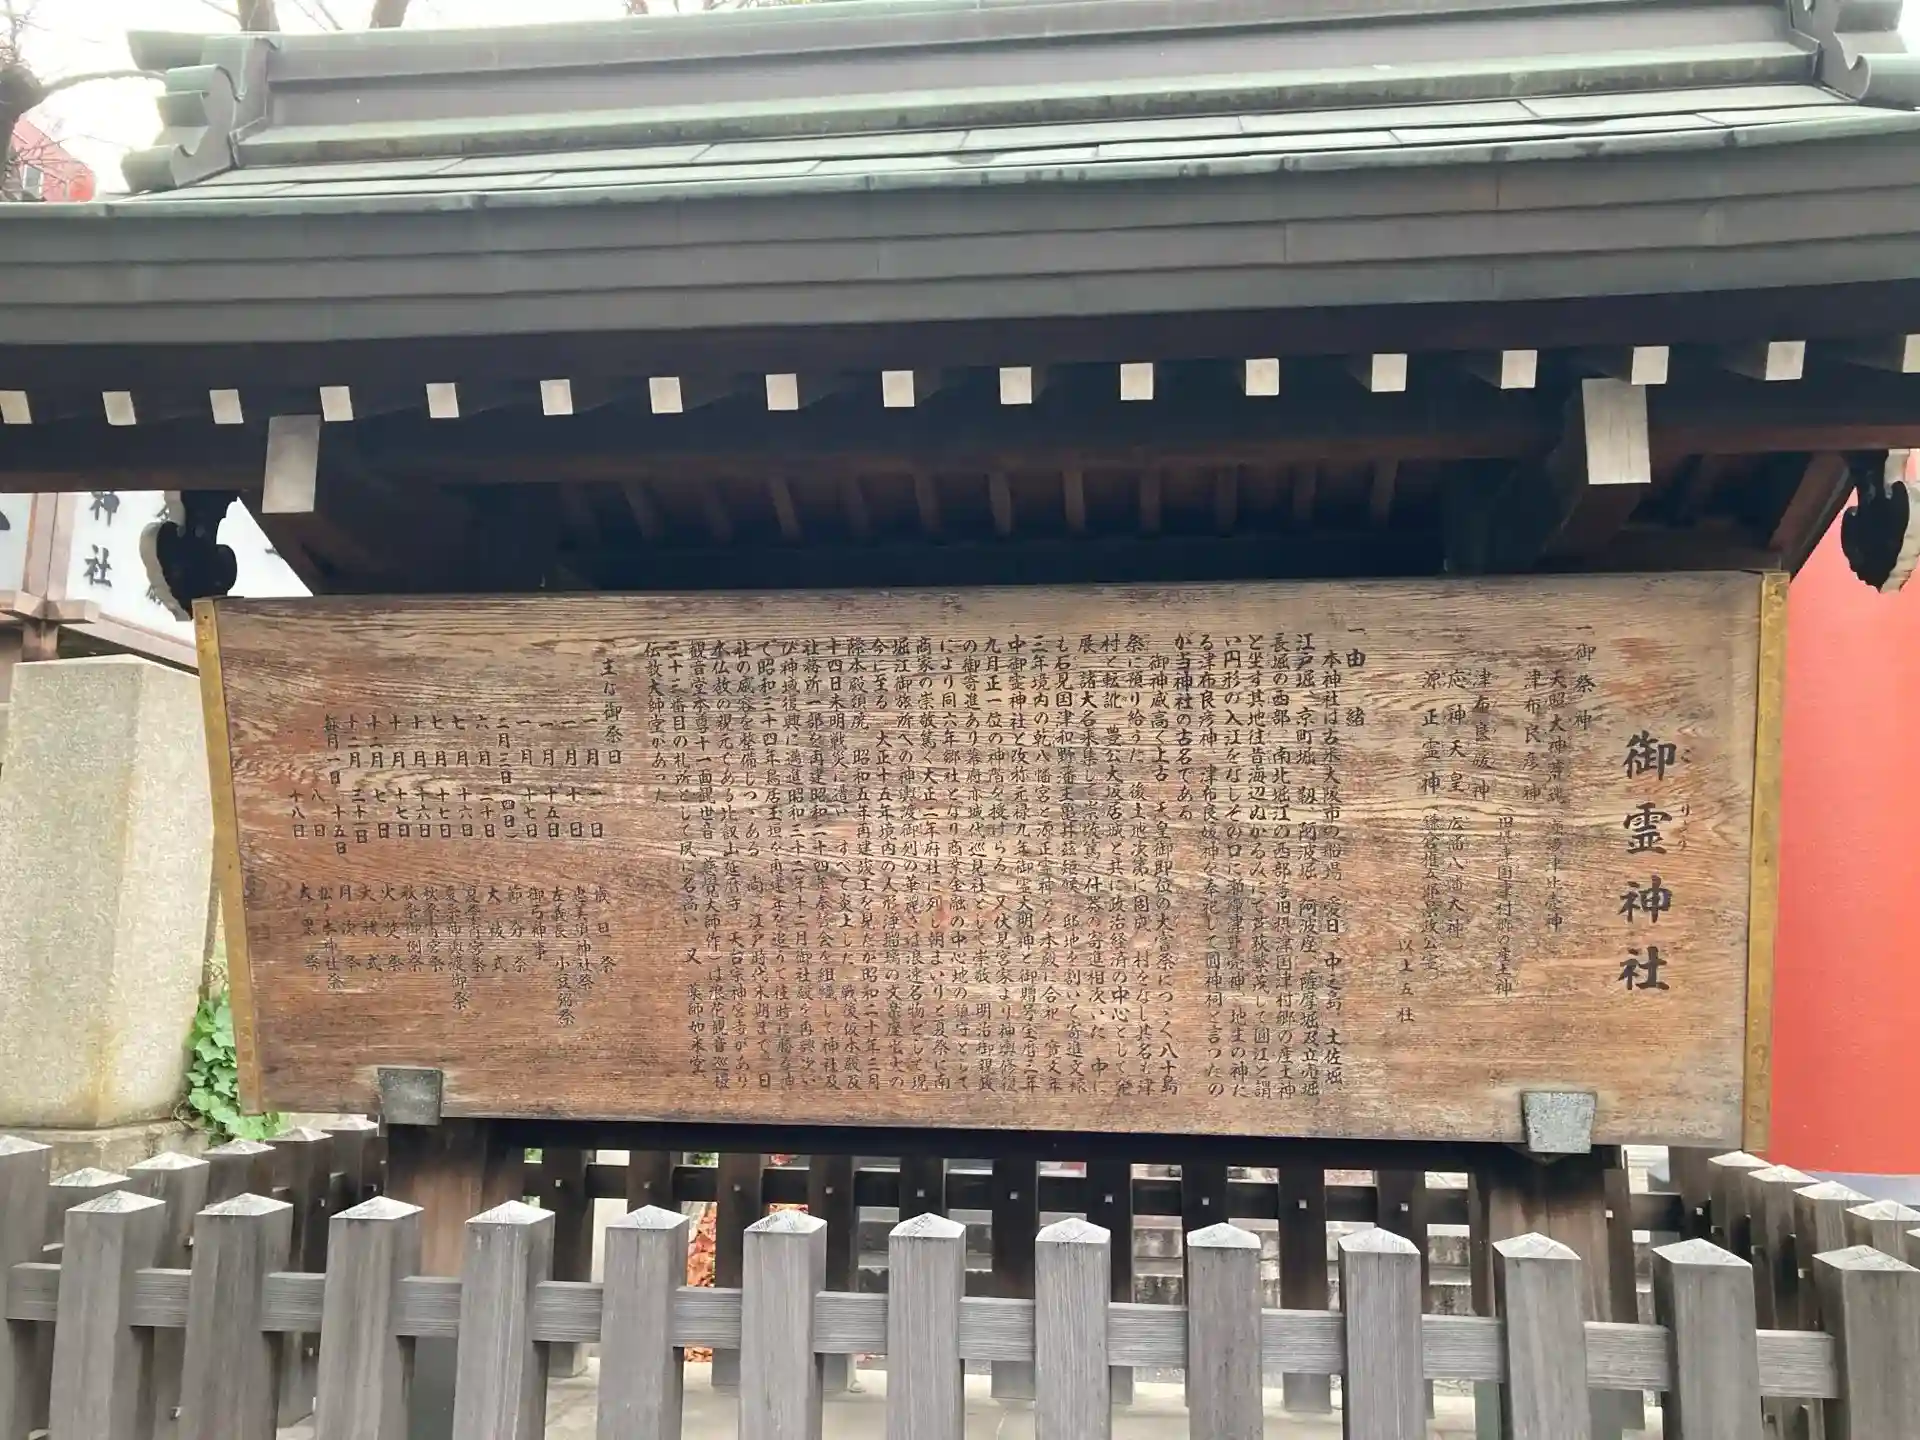 御霊神社
ごりょう
一 御祭神
天照大神荒魂 瀬織津比売神
津布良彦神
津布良媛神 (旧摂津国津村郷の産土神)
応神天皇 (広幡八幡大神)
源正霊神 (鎌倉権五郎景政公霊)
以上五社
一 由緒
本神社は古来大阪市の船場、愛日、中之島、土佐堀、
江戸堀、京町堀、靱、阿波堀、阿波座、薩摩堀及立売堀、
長堀の西部、南北堀江の西部等旧摂津国津村郷の産土神
と坐す其地往昔海辺ぬかるみにて芦荻繁茂して圓江と謂
い円形の入江をなしその口に瀬織津比売神、地主の神た
る津布良彦神、津布良媛神を奉祀して圓神祠と言つたの
が当神社の古名である
御神威高く上古、天皇御即位の大嘗祭につゞく八十島
祭に預り給うた、後土地次第に固成、村をなし其名も津
村と転訛、豊公大坂居城と共に政治経済の中心として発
展、諸大名来集して崇敬篤く什器の寄進相次いだ、中に
も石見国津和野藩主亀井茲矩候、邸地を割いて寄進文禄
三年境内の乾八幡宮と源正霊神とを本殿に合祀、寛文年
中御霊神社と改称元禄九年御霊大明神と御贈号宝暦三年
九月正一位の神階を授けらる、又伏見宮家より神輿修復
の御寄進あり幕府亦城代巡見社として崇敬、明治御親政
により同六年郷社となり商業金融の中心地の鎮守として
商家の崇敬篤く大正二年府社に列し朝まいりと夏祭に南
堀江御旅所への神輿渡御列の華麗さは浪速名物として現
今に至る、大正十五年境内の人形浄瑠璃の文楽座出火の
際本殿類焼、昭和五年再建竣工を見たが昭和二十年三月
十四日未明戦災に遭い、すべて炎上した、戦後仮本殿及
社務所一部を再建昭和二十四年奉賛会を組織して神社及
び神域復興に邁進昭和三十二年十二月御社殿を再興少い
で昭和三十四年鳥居玉垣を再建年を追うて往時に勝る神
社の威容を整備しつゝある、尚、江戸時代末期まで、日
本仏教の親元である比叡山延暦寺、天台宗神宮寺があり
観音堂本尊十一面観世音(慈覚大師作)は浪花観音巡礼
三十三番目の札所として夙に名高い、又、薬師如来堂、
伝教大師堂があった
主な御祭日
一月一日 歳旦祭
一月十日 恵美須神社祭
一月十五日 左義長 小豆粥祭
一月十七日 御弓神事
二月三日(四日) 節分祭
六月三十日 大祓式
七月十六日 夏祭宵宮祭
七月十七日 夏祭神輿渡御祭
十月十六日 秋祭宵宮祭
十月十七日 秋祭御例祭
十二月七日 火焚祭
十二月三十一日 大祓式
毎月一日、十五日 月次祭
八日 松之木神社祭
十八日 大黒祭
神社